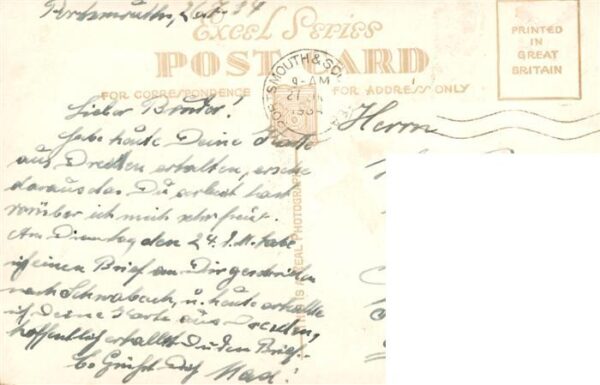 Portsmouth, 26.
EXCEL SERIES
POST CARD
FOR CORRESPONDENCE
FOR ADDRESS ONLY
PRINTED
IN
GREAT
BRITAIN
PORTSMOUTH &
9-AM
27
THIS IS A REAL PHOTOGRAPH
Herrn
Lieber Bruder!
habe heute Deine Karte
aus Dresden erhalten, ersehe
daraus das Du arbeit hast
worüber ich mich sehr freue.
Am Dienstag den 24. d. M. habe
ich einen Brief an Dir geschrieben
nach Schwabach, u. heute erhalte
ich Deine Karte aus Dresden,
hoffentlich erhältst Du den Brief.
Es Grüßt Dich